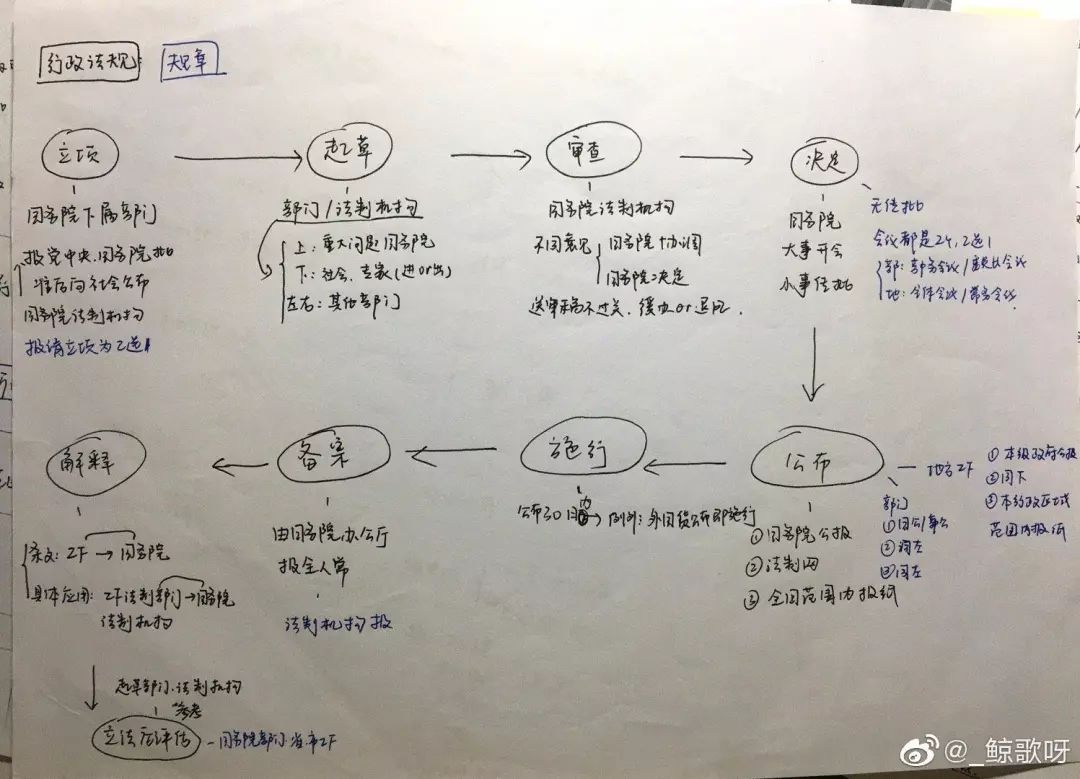 行政法规
规章
立项
起草
审查
决定
国务院下属部门
报党中央、国务院批
准后向社会公布
国务院法制机构
报请立项为2选1
部门/法制机构
上：重大问题国务院
下：社会、专家（进or出）
左右：其他部门
国务院法制机构
不同意见
国务院协调
国务院决定
送审稿不过关，缓办or退回.
国务院
大事开会
小事传批
无传批
会议都是2个，2选1
部：部务会议/委员会议
地：全体会议/常务会议
解释
备案
施行
公布
条文：ZF → 国务院
具体应用：ZF法制部门→国务院
法制机构
由国务院办公厅
报全人常
法制机构报
公布30日
内
→例外：外国货公布即施行
①国务院公报
②法制网
③全国范围内报纸
地方ZF
①本级政府公报
②同下
③本行政区域
范围内报纸
部门
①国公/部公
②同左
③同左
起草部门、法制机构
参考
立法后评估
-国务院部门、省、市ZF
@_鲸歌呀